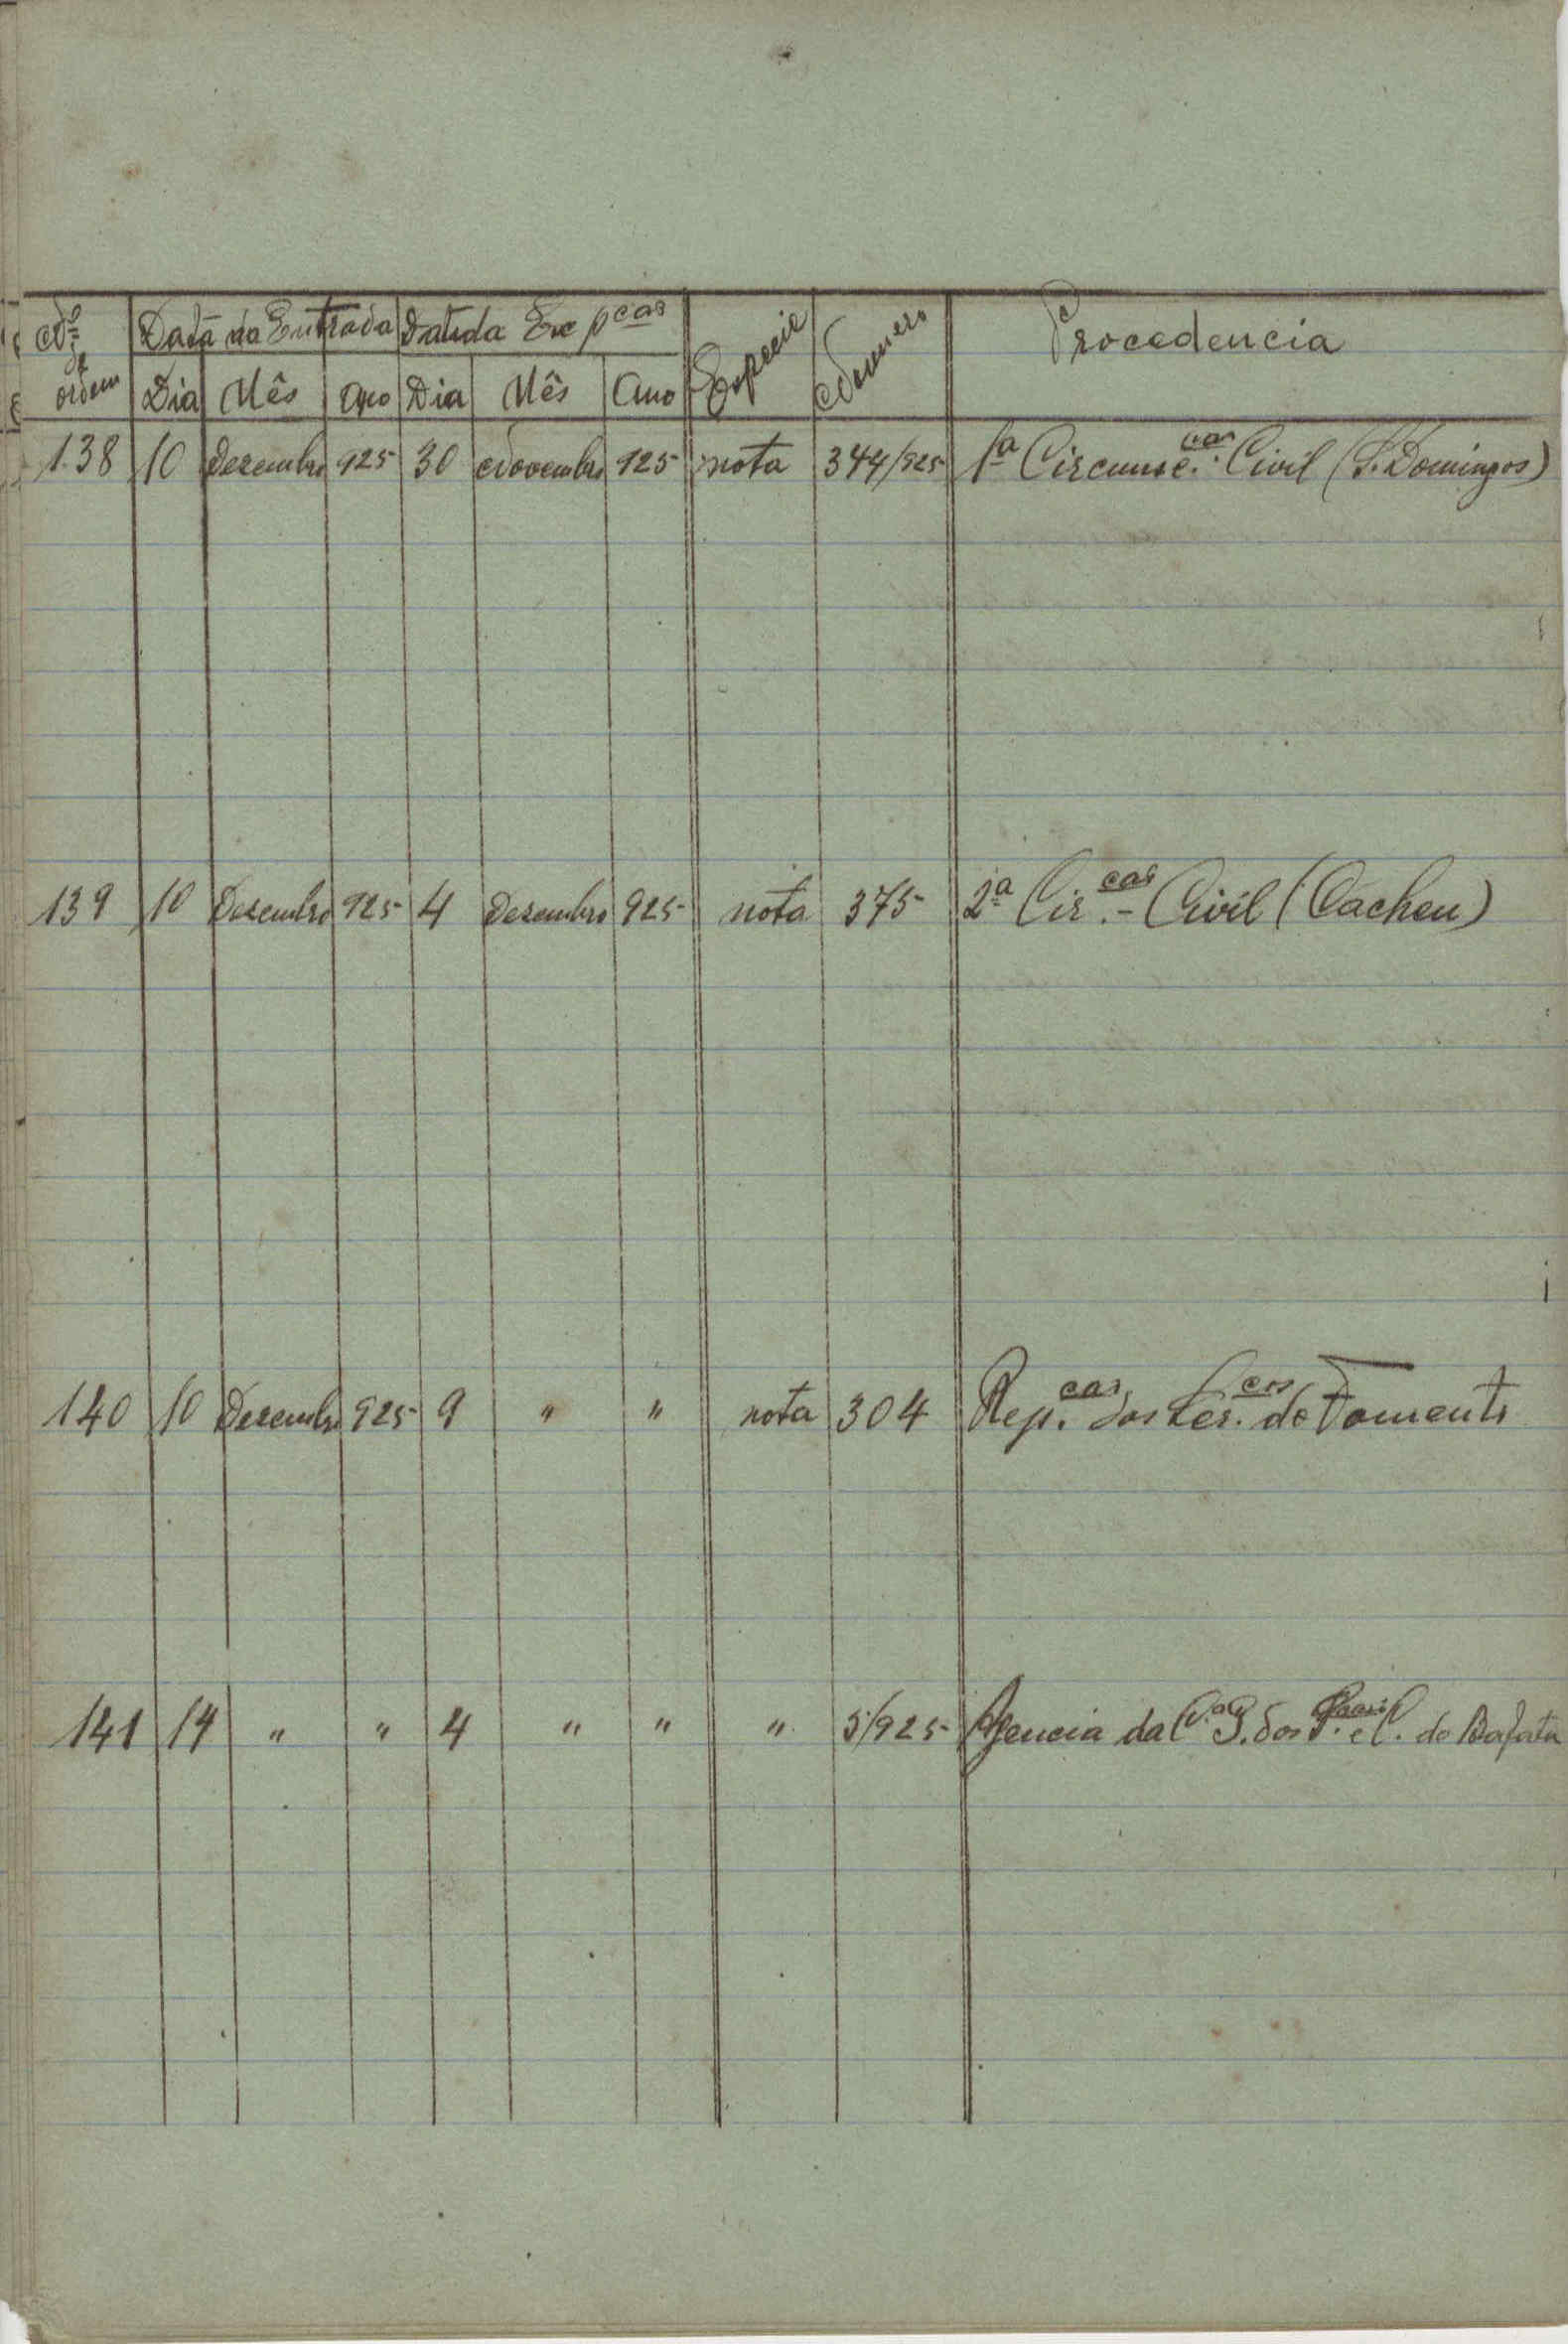 Nº de ordem | Data da Entrada | Data da Exp.ção | Especie | Numero | Procedencia
Dia | Mês | Ano | Dia | Mês | Ano
138 | 10 | Dezembro | 925 | 30 | Novembro | 925 | nota | 344/925 | 1ª Circunsc.ção Civil (S. Domingos)
139 | 10 | Dezembro | 925 | 4 | Dezembro | 925 | nota | 375 | 2ª Cir.ção Civil (Cacheu)
140 | 10 | Dezembro | 925 | 9 | " | " | nota | 304 | Rep.ção dos Ser.ços do Fomento
141 | 14 | " | " | 4 | " | " | " | 5/925 | Agencia da C.ª G. dos P. e C. de Bafata